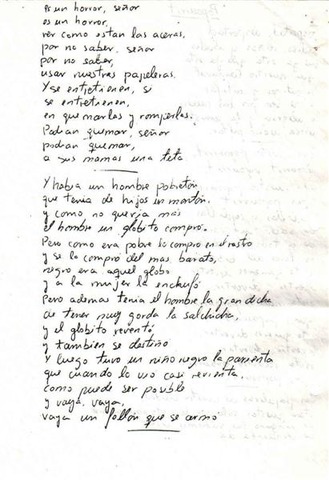 es un horror, señor
es un horror,
ver como estan las aceras,
por no saber, señor
por no saber,
usar nuestras papeleras.
Y se entretienen, si
se entretienen,
en quemarlas y romperlas.
Podian quemar, señor
podian quemar,
a sus mamas una teta
Y habia un hombre pobreton,
que tenia de hijos un monton.
y como no queria mas
el hombre un globito compró.
Pero como era pobre lo compro en el rastro
y se lo compro del mas barato,
negro era aquel globo
y a la mujer la enchufó
Pero ademas tenia el hombre la gran dicha
de tener muy gorda la salchicha,
y el globito reventó
y tambien se destiño
Y luego tuvo un niño negro la parienta
que cuando lo vio casi revienta.
como puede ser posible
y vaya, vaya,
vaya un follón que se armó